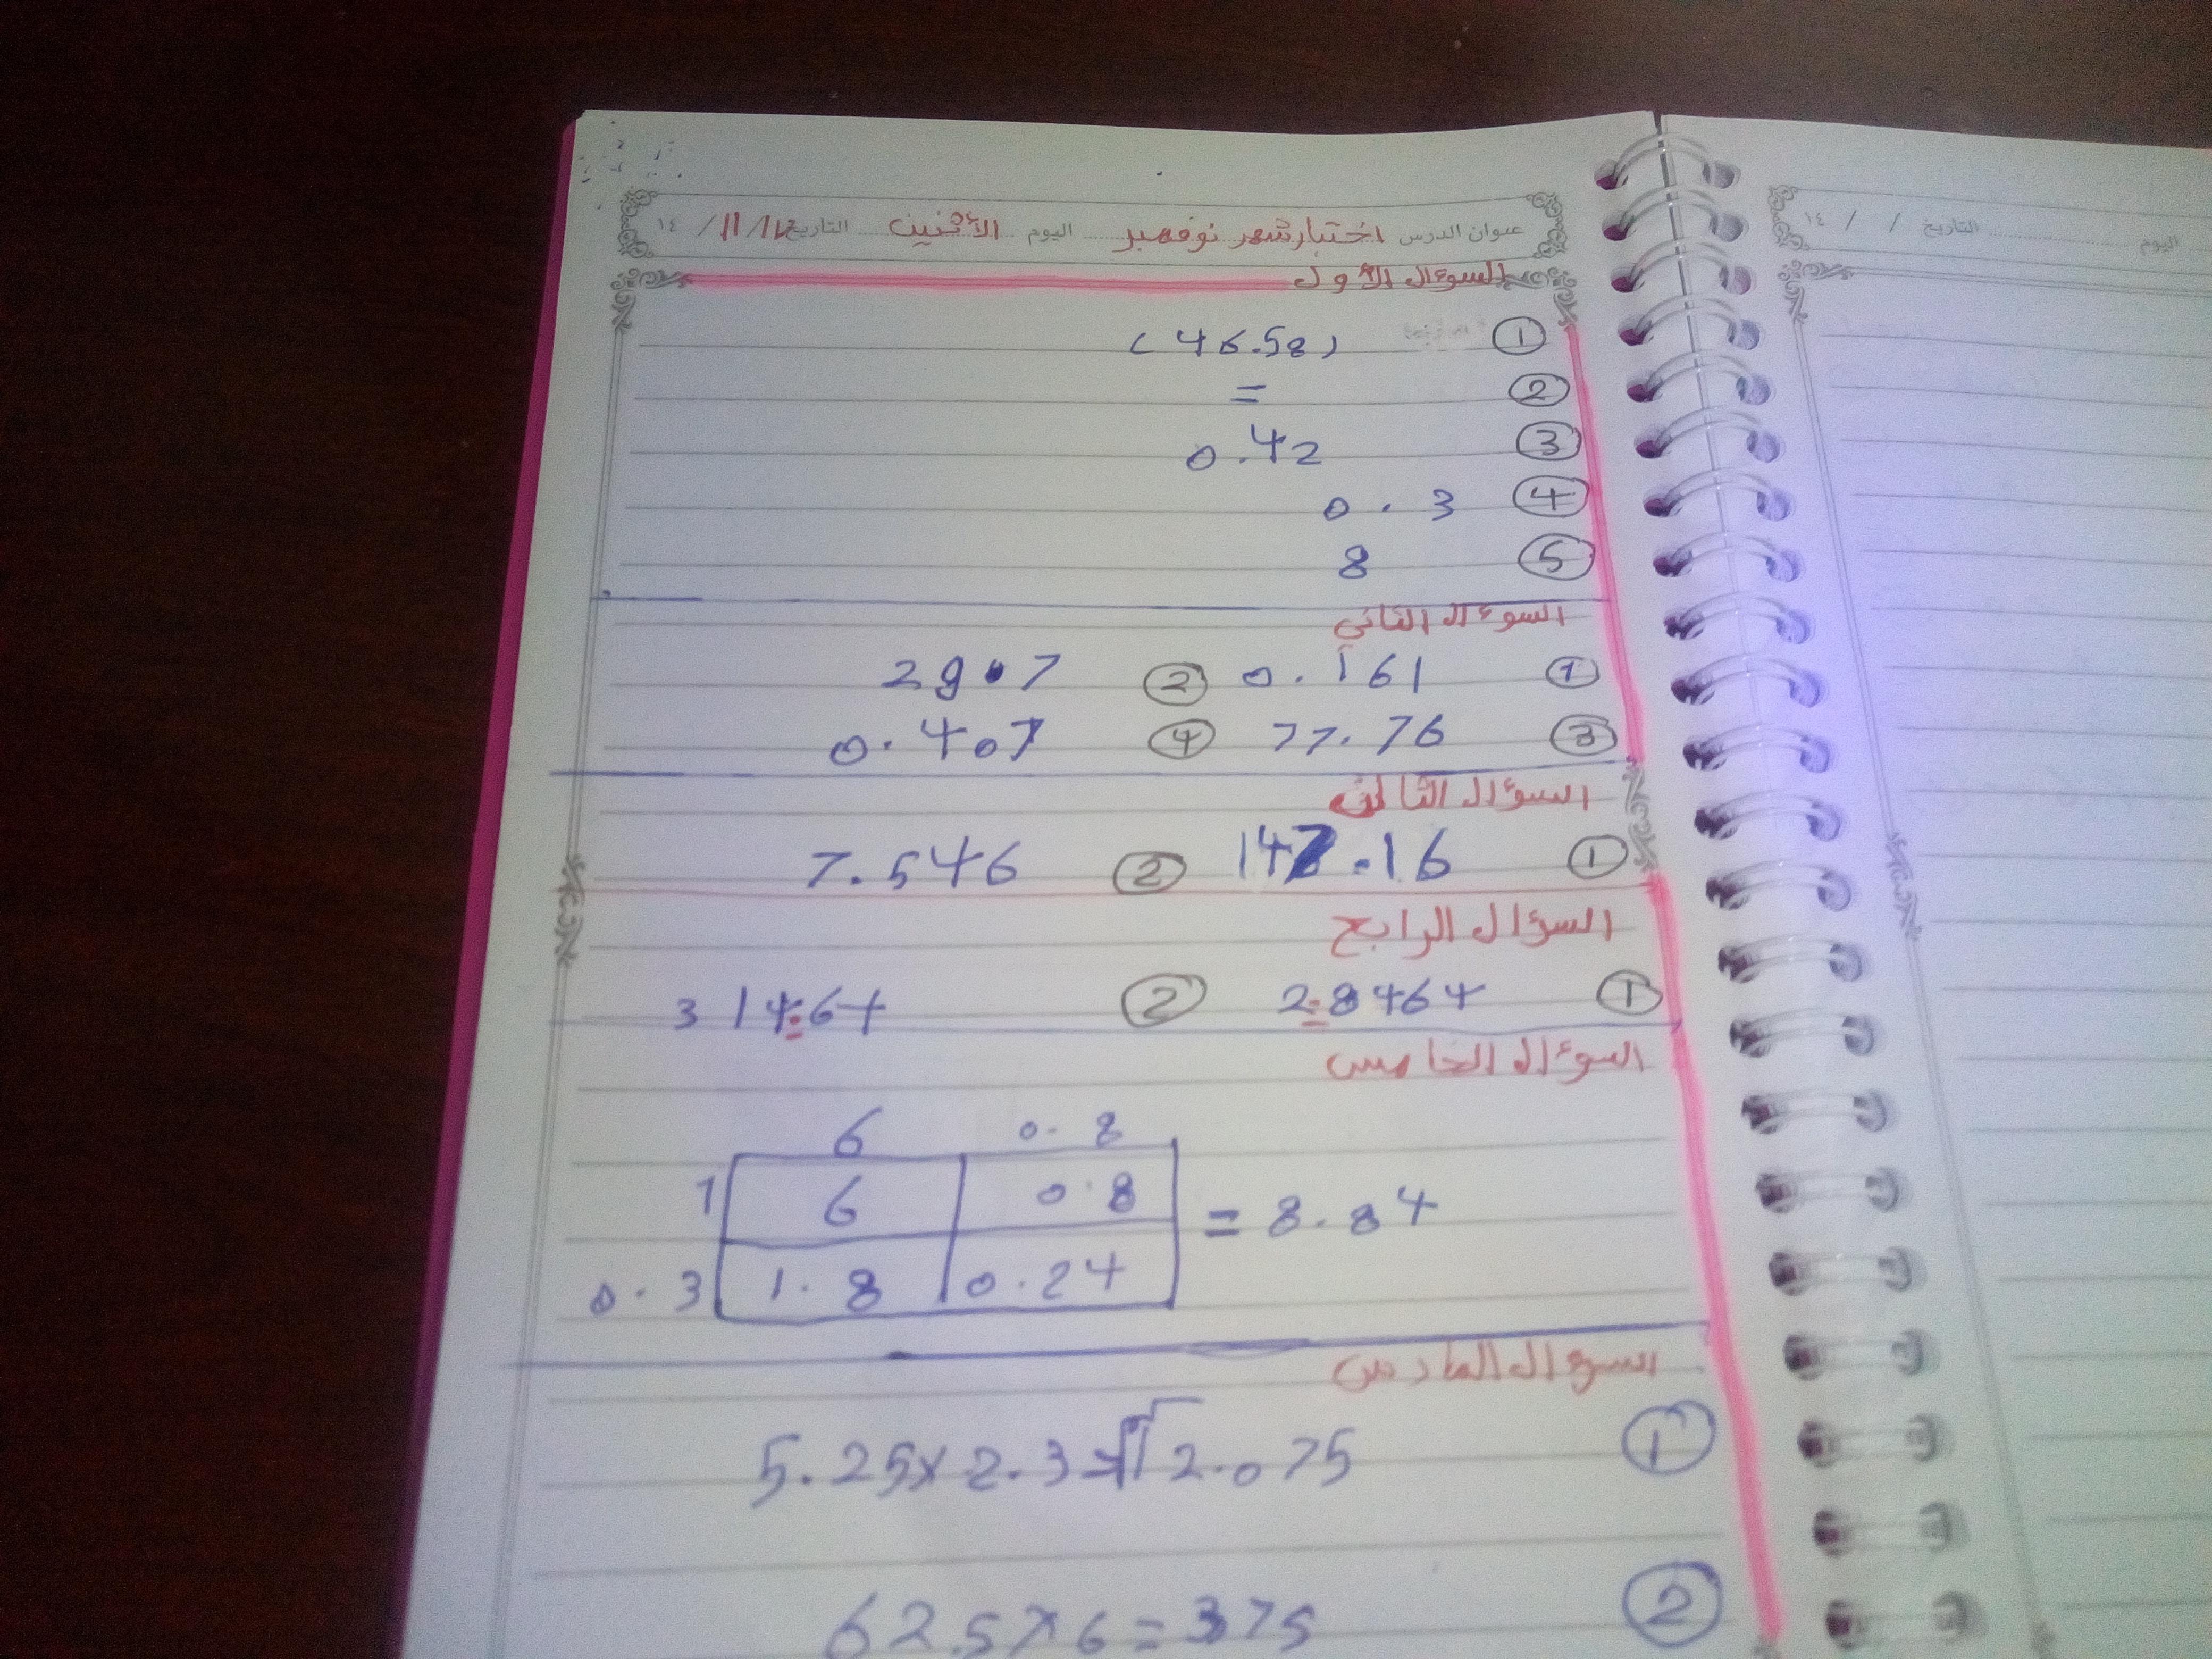 عنوان الدرس اختبار شهر نوفمبر اليوم الأثنين التاريخ / 11 / ١٤
السوءال الأول
① (46.58)
② =
③ 0.42
④ 0.3
⑤ 8
السوءال الثاني
① 0.161 ② 29.7
③ 77.76 ④ 0.407
السؤال الثالث
① 147.16 ② 7.546
السؤال الرابع
① 2.8464 ② 314.64
السوءال الخامس
6 0.8
1 6 0.8 = 8.84
0.3 1.8 0.24
السوءال السادس
① 5.25×2.3=12.075
② 62.5×6=375
اليوم التاريخ / / ١٤